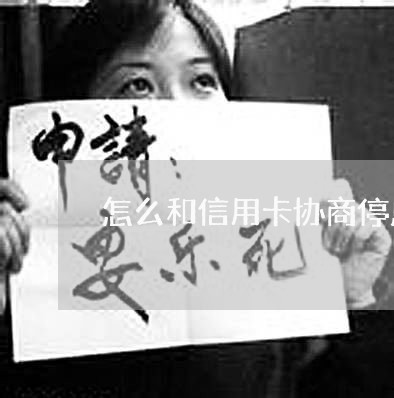 申請：
怎么和信用卡协商停
安乐死